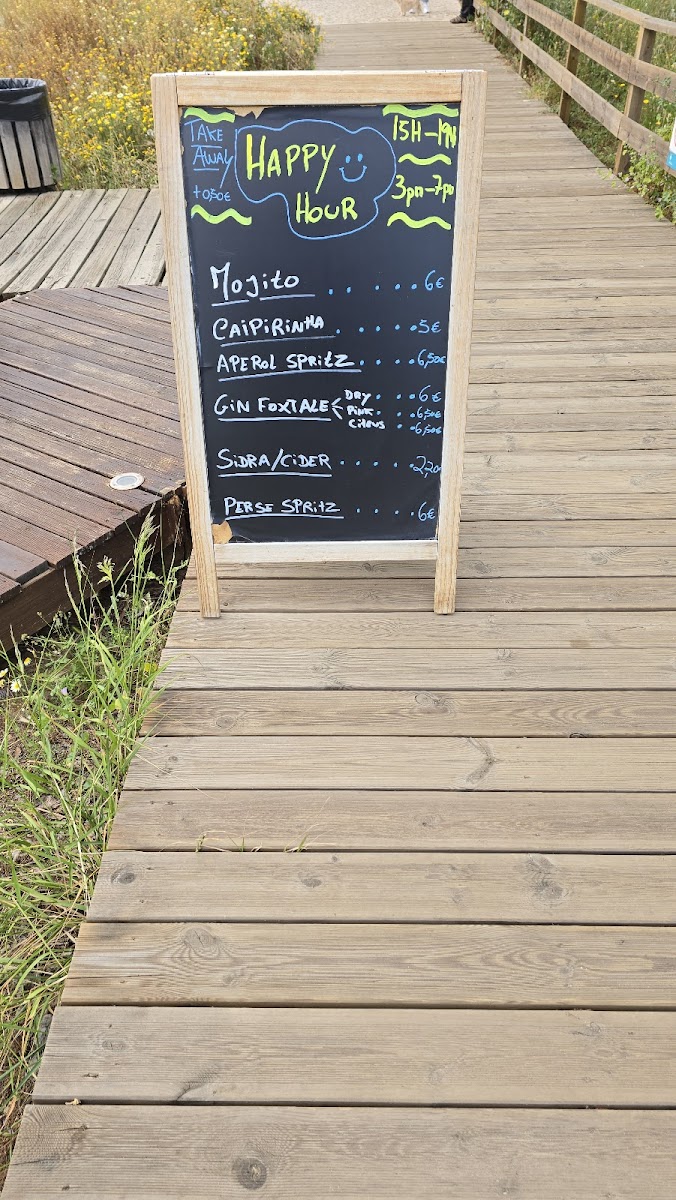 TAKE
AWAY
+0,50€
HAPPY
HOUR
15H-19H
3pm-7pm
Mojito ....... 6€
CAIPIRINHA ...... 5€
APEROL SPRITZ ..... 6,50€
GIN FOXTALE < DRY ... 6€
PINK ... 6,50€
CITRUS .. 6,50€
SIDRA/CIDER ...... 2,20€
PERSE SPRITZ ...... 6€